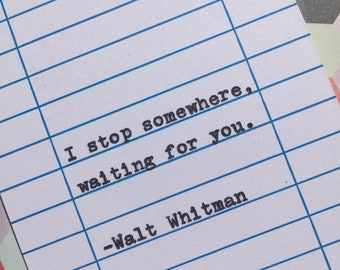 I stop somewhere,
waiting for you.
-Walt Whitman